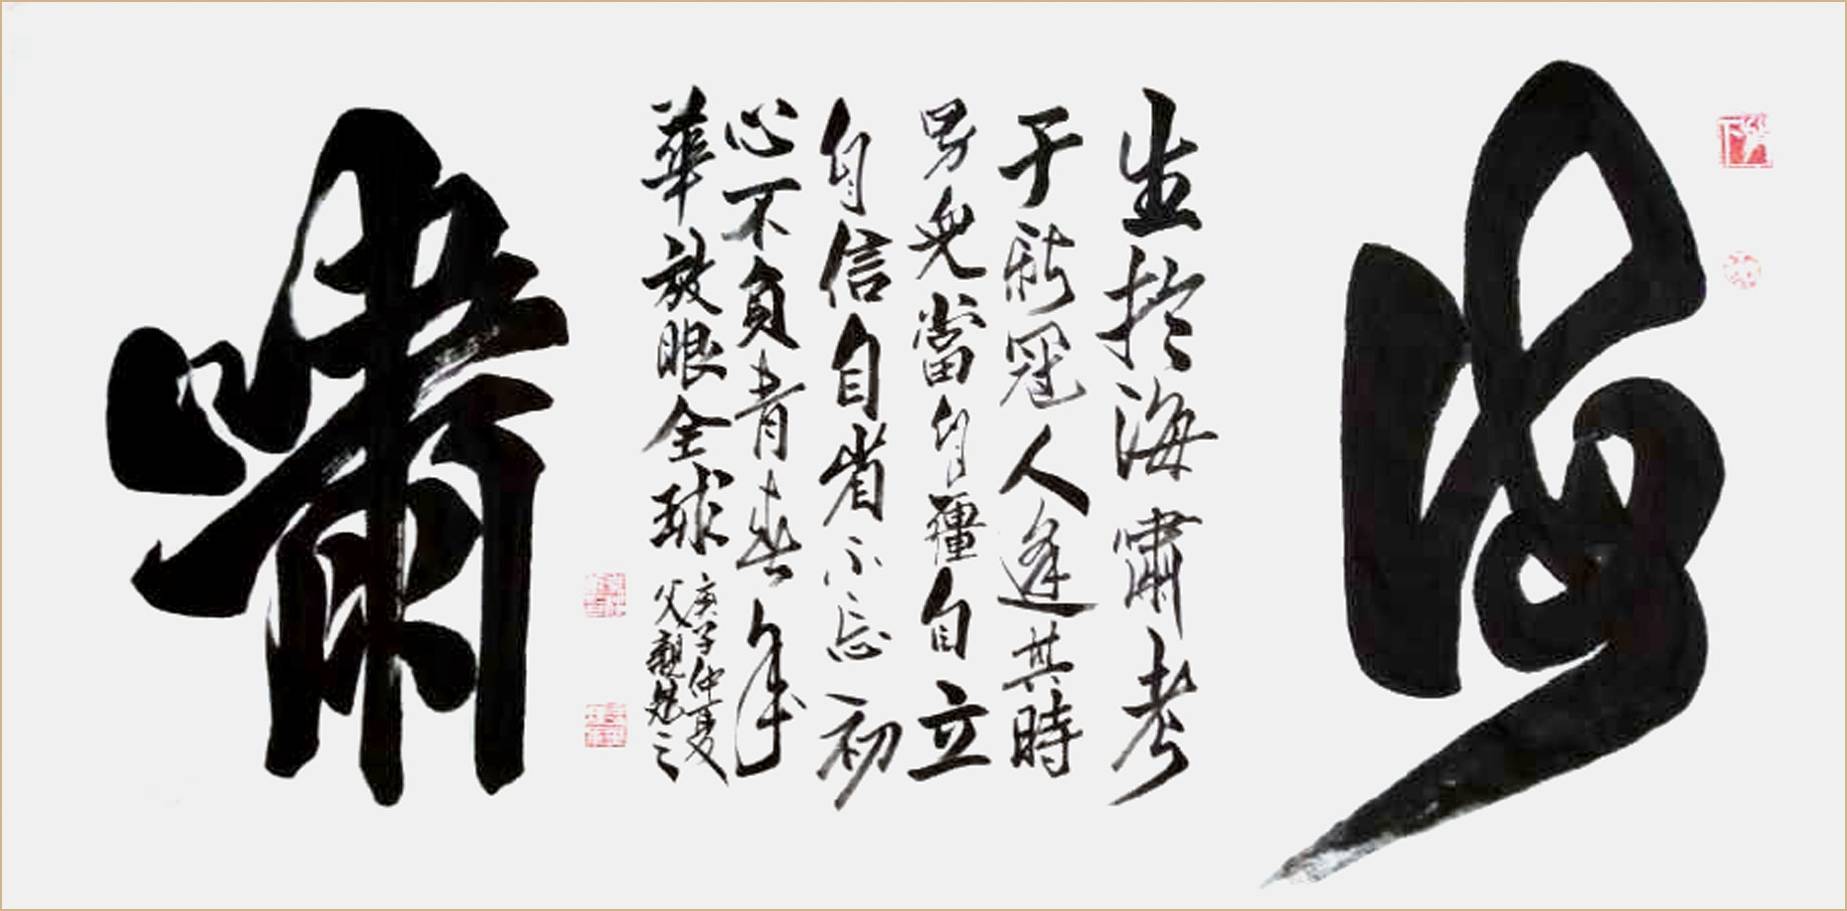 海
生於海嘯考
于新冠人逢其時
男兒當自強自立
自信自省不忘初
心不負青春年
華放眼全球
庚子仲夏
父親勉之
嘯